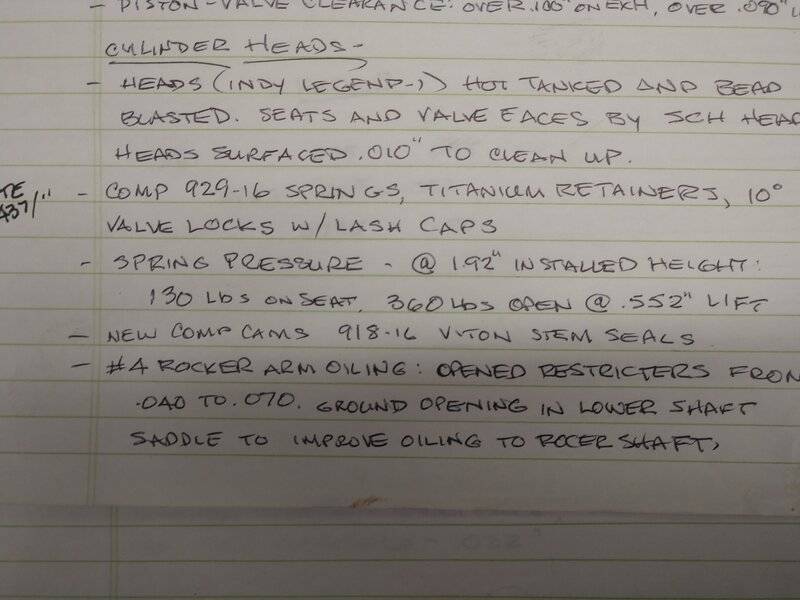 - PISTON-VALVE CLEARANCE: OVER .100" ON EXH, OVER .090"
CYLINDER HEADS-
- HEADS (INDY LEGEND-1) HOT TANKED AND BEAD
BLASTED. SEATS AND VALVE FACES BY SCH HEAD
HEADS SURFACED .010" TO CLEAN UP.
- COMP 929-16 SPRINGS, TITANIUM RETAINERS, 10°
VALVE LOCKS W/ LASH CAPS
- SPRING PRESSURE - @ 1.92" INSTALLED HEIGHT:
130 LBS ON SEAT, 360 LBS OPEN @ .552" LIFT
- NEW COMP CAMS 918-16 VITON STEM SEALS
- #4 ROCKER ARM OILING: OPENED RESTRICTERS FROM
.040 TO .070. GROUND OPENING IN LOWER SHAFT
SADDLE TO IMPROVE OILING TO ROCER SHAFT,